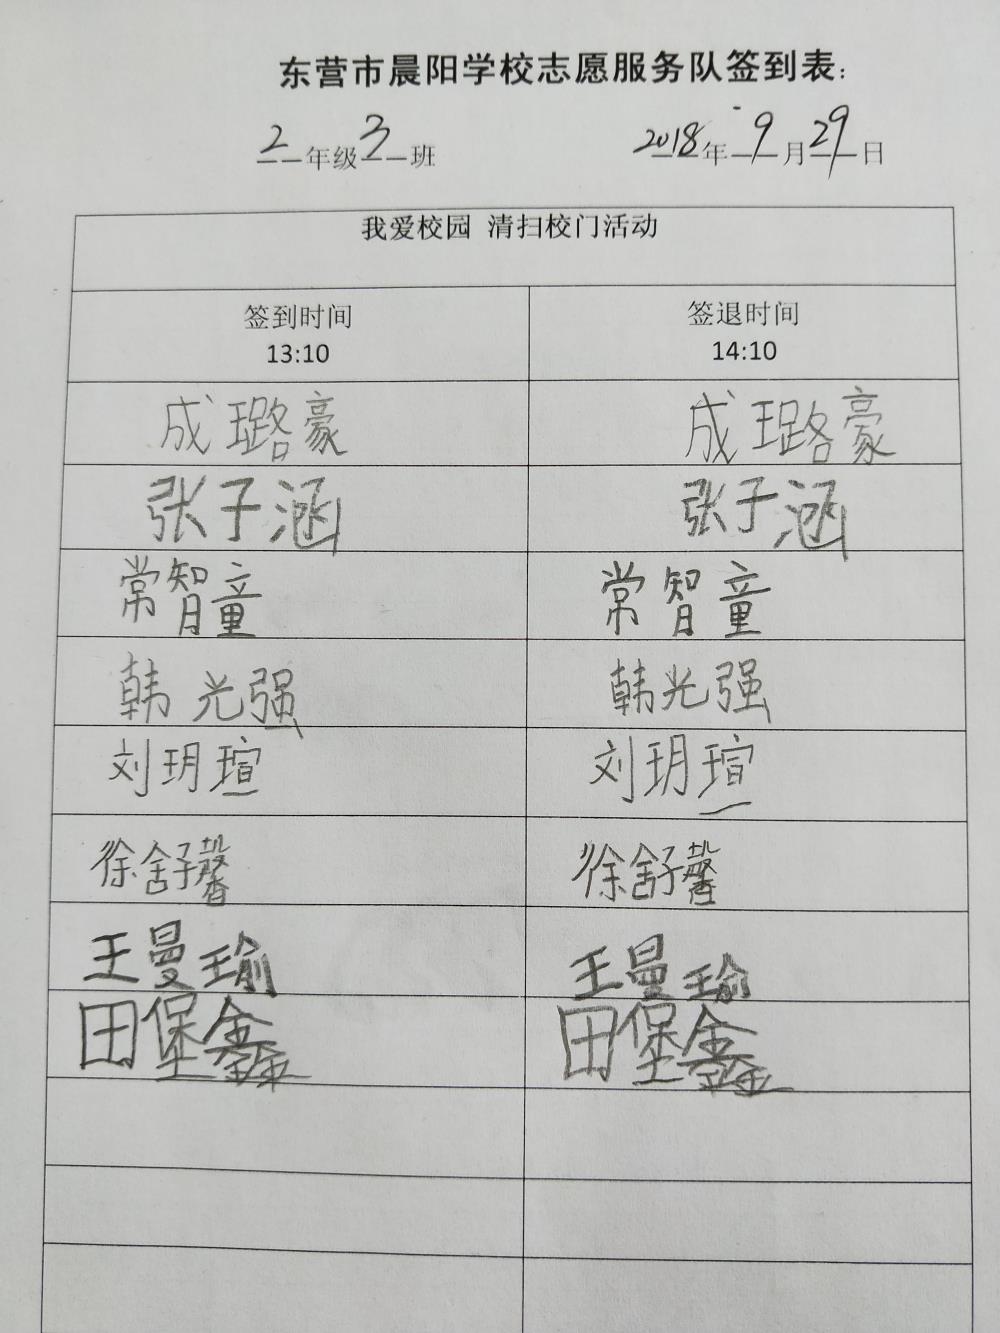 东营市晨阳学校志愿服务队签到表：
2年级3班 2018年9月29日
我爱校园 清扫校门活动
签到时间 签退时间
13:10 14:10
成璐豪 成璐豪
张子涵 张子涵
常智童 常智童
韩光强 韩光强
刘玥瑄 刘玥瑄
徐舒馨 徐舒馨
王曼瑜 王曼瑜
田堡鑫 田堡鑫